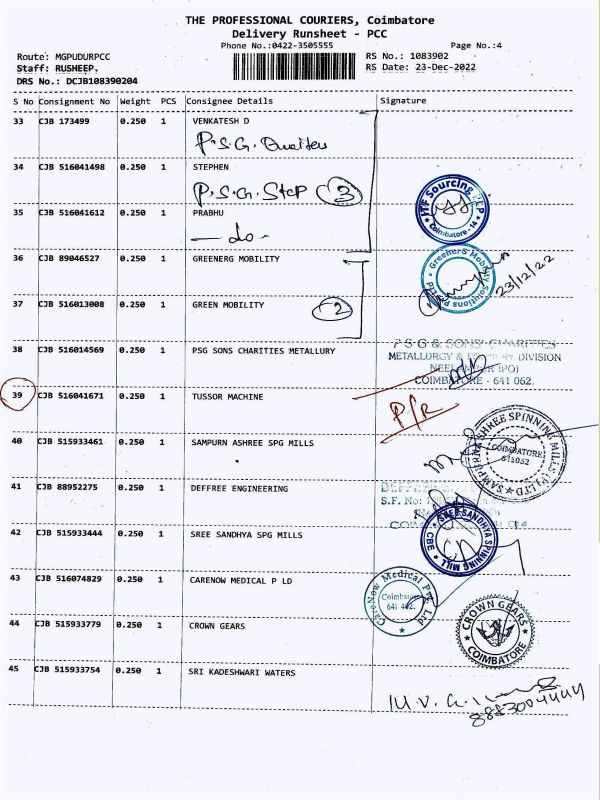 THE PROFESSIONAL COURIERS, Coimbatore
Delivery Runsheet - PCC
Phone No.:0422-3505555
Page No.:4
Route: MGPUDURPCC
RS No.: 1083902
Staff: RUSHEEP.
RS Date: 23-Dec-2022
DRS No.: DCJB108390204
S No Consignment No Weight PCS Consignee Details Signature
33 CJB 173499 0.250 1 VENKATESH D
P.S.G.
34 CJB 516041498 0.250 1 STEPHEN
P.S.G. Step 3
ITF Sourcing LLP
Coimbatore - 14
35 CJB 516041612 0.250 1 PRABHU
— do -
36 CJB 89046527 0.250 1 GREENERG MOBILITY
23/12/22
37 CJB 516013008 0.250 1 GREEN MOBILITY
2
38 CJB 516014569 0.250 1 PSG SONS CHARITIES METALLURY
P S G & SONS CHARITIES
METALLURGY & DIVISION
(PO)
COIMBATORE - 641 062.
39 CJB 516041671 0.250 1 TUSSOR MACHINE
P/R
40 CJB 515933461 0.250 1 SAMPURN ASHREE SPG MILLS
SHREE SPINNING MILLS (P) LTD
COIMBATORE
641062
41 CJB 88952275 0.250 1 DEFFREE ENGINEERING
S.F. No:
42 CJB 515933444 0.250 1 SREE SANDHYA SPG MILLS
SREE SANDHYA SPINNING MILL
CBE
43 CJB 516074829 0.250 1 CARENOW MEDICAL P LD
CareNow Medical Pvt Ltd
Coimbatore
641 402.
44 CJB 515933779 0.250 1 CROWN GEARS
CROWN GEARS
COIMBATORE
45 CJB 515933754 0.250 1 SRI KADESHWARI WATERS
8883004444